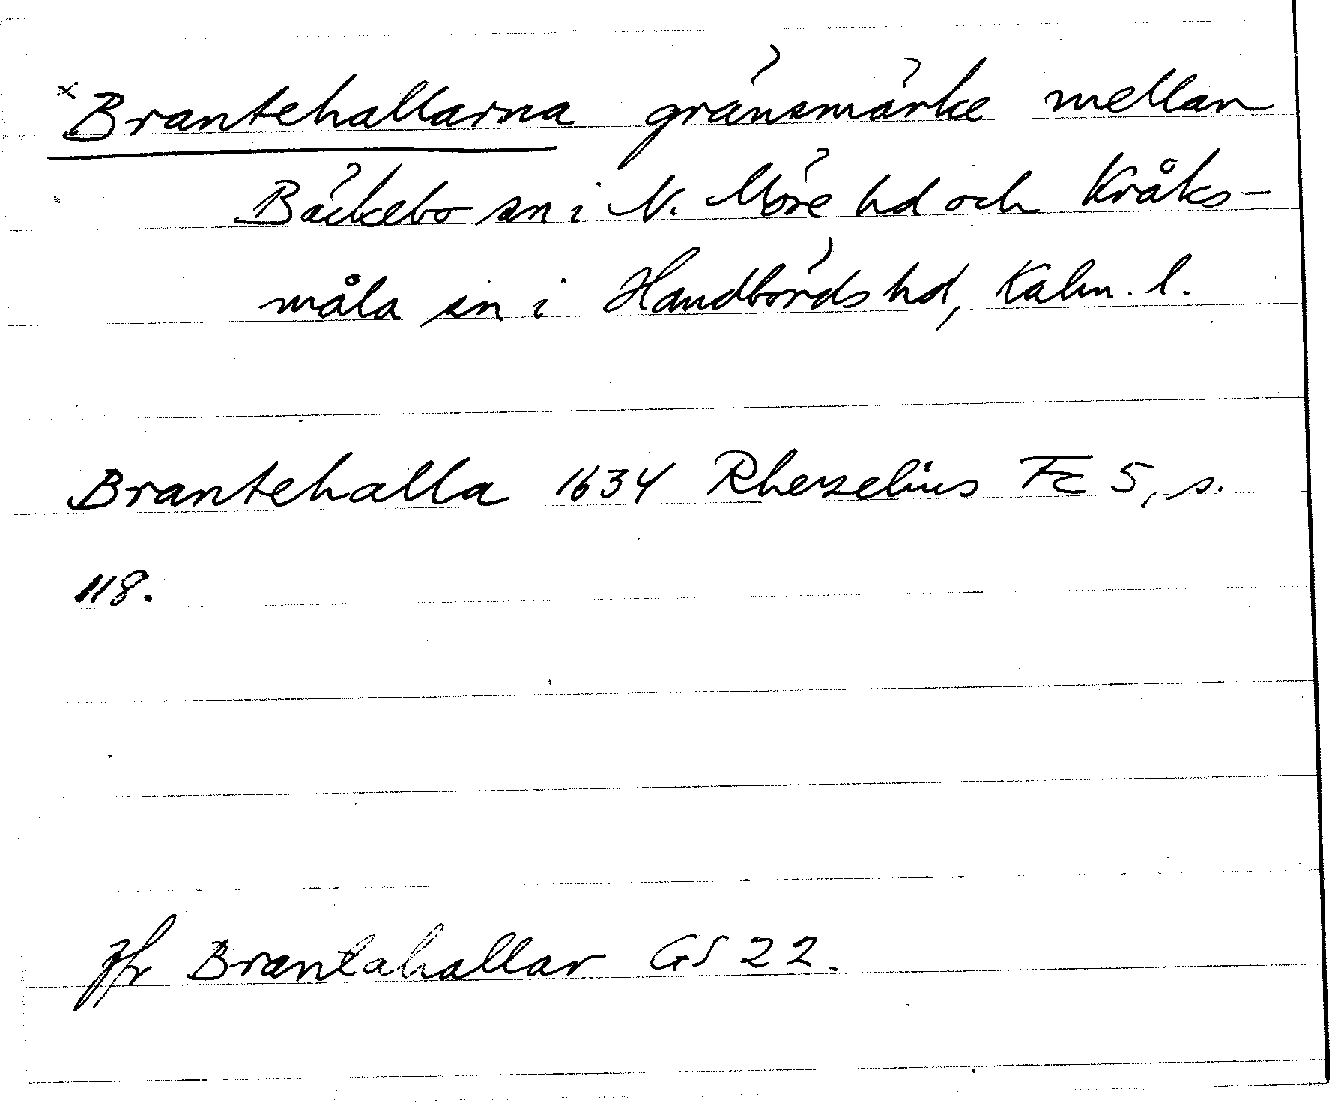 × Brantehallarna gränsmärke mellan
Bäckebo sn i N. Möre hd och Kråks-
måla sn i Handbörds hd, Kalm. l.
Brantehalla 1634 Rhezelius Fc 5, s.
118.
Jfr Brantahallar GS 22.